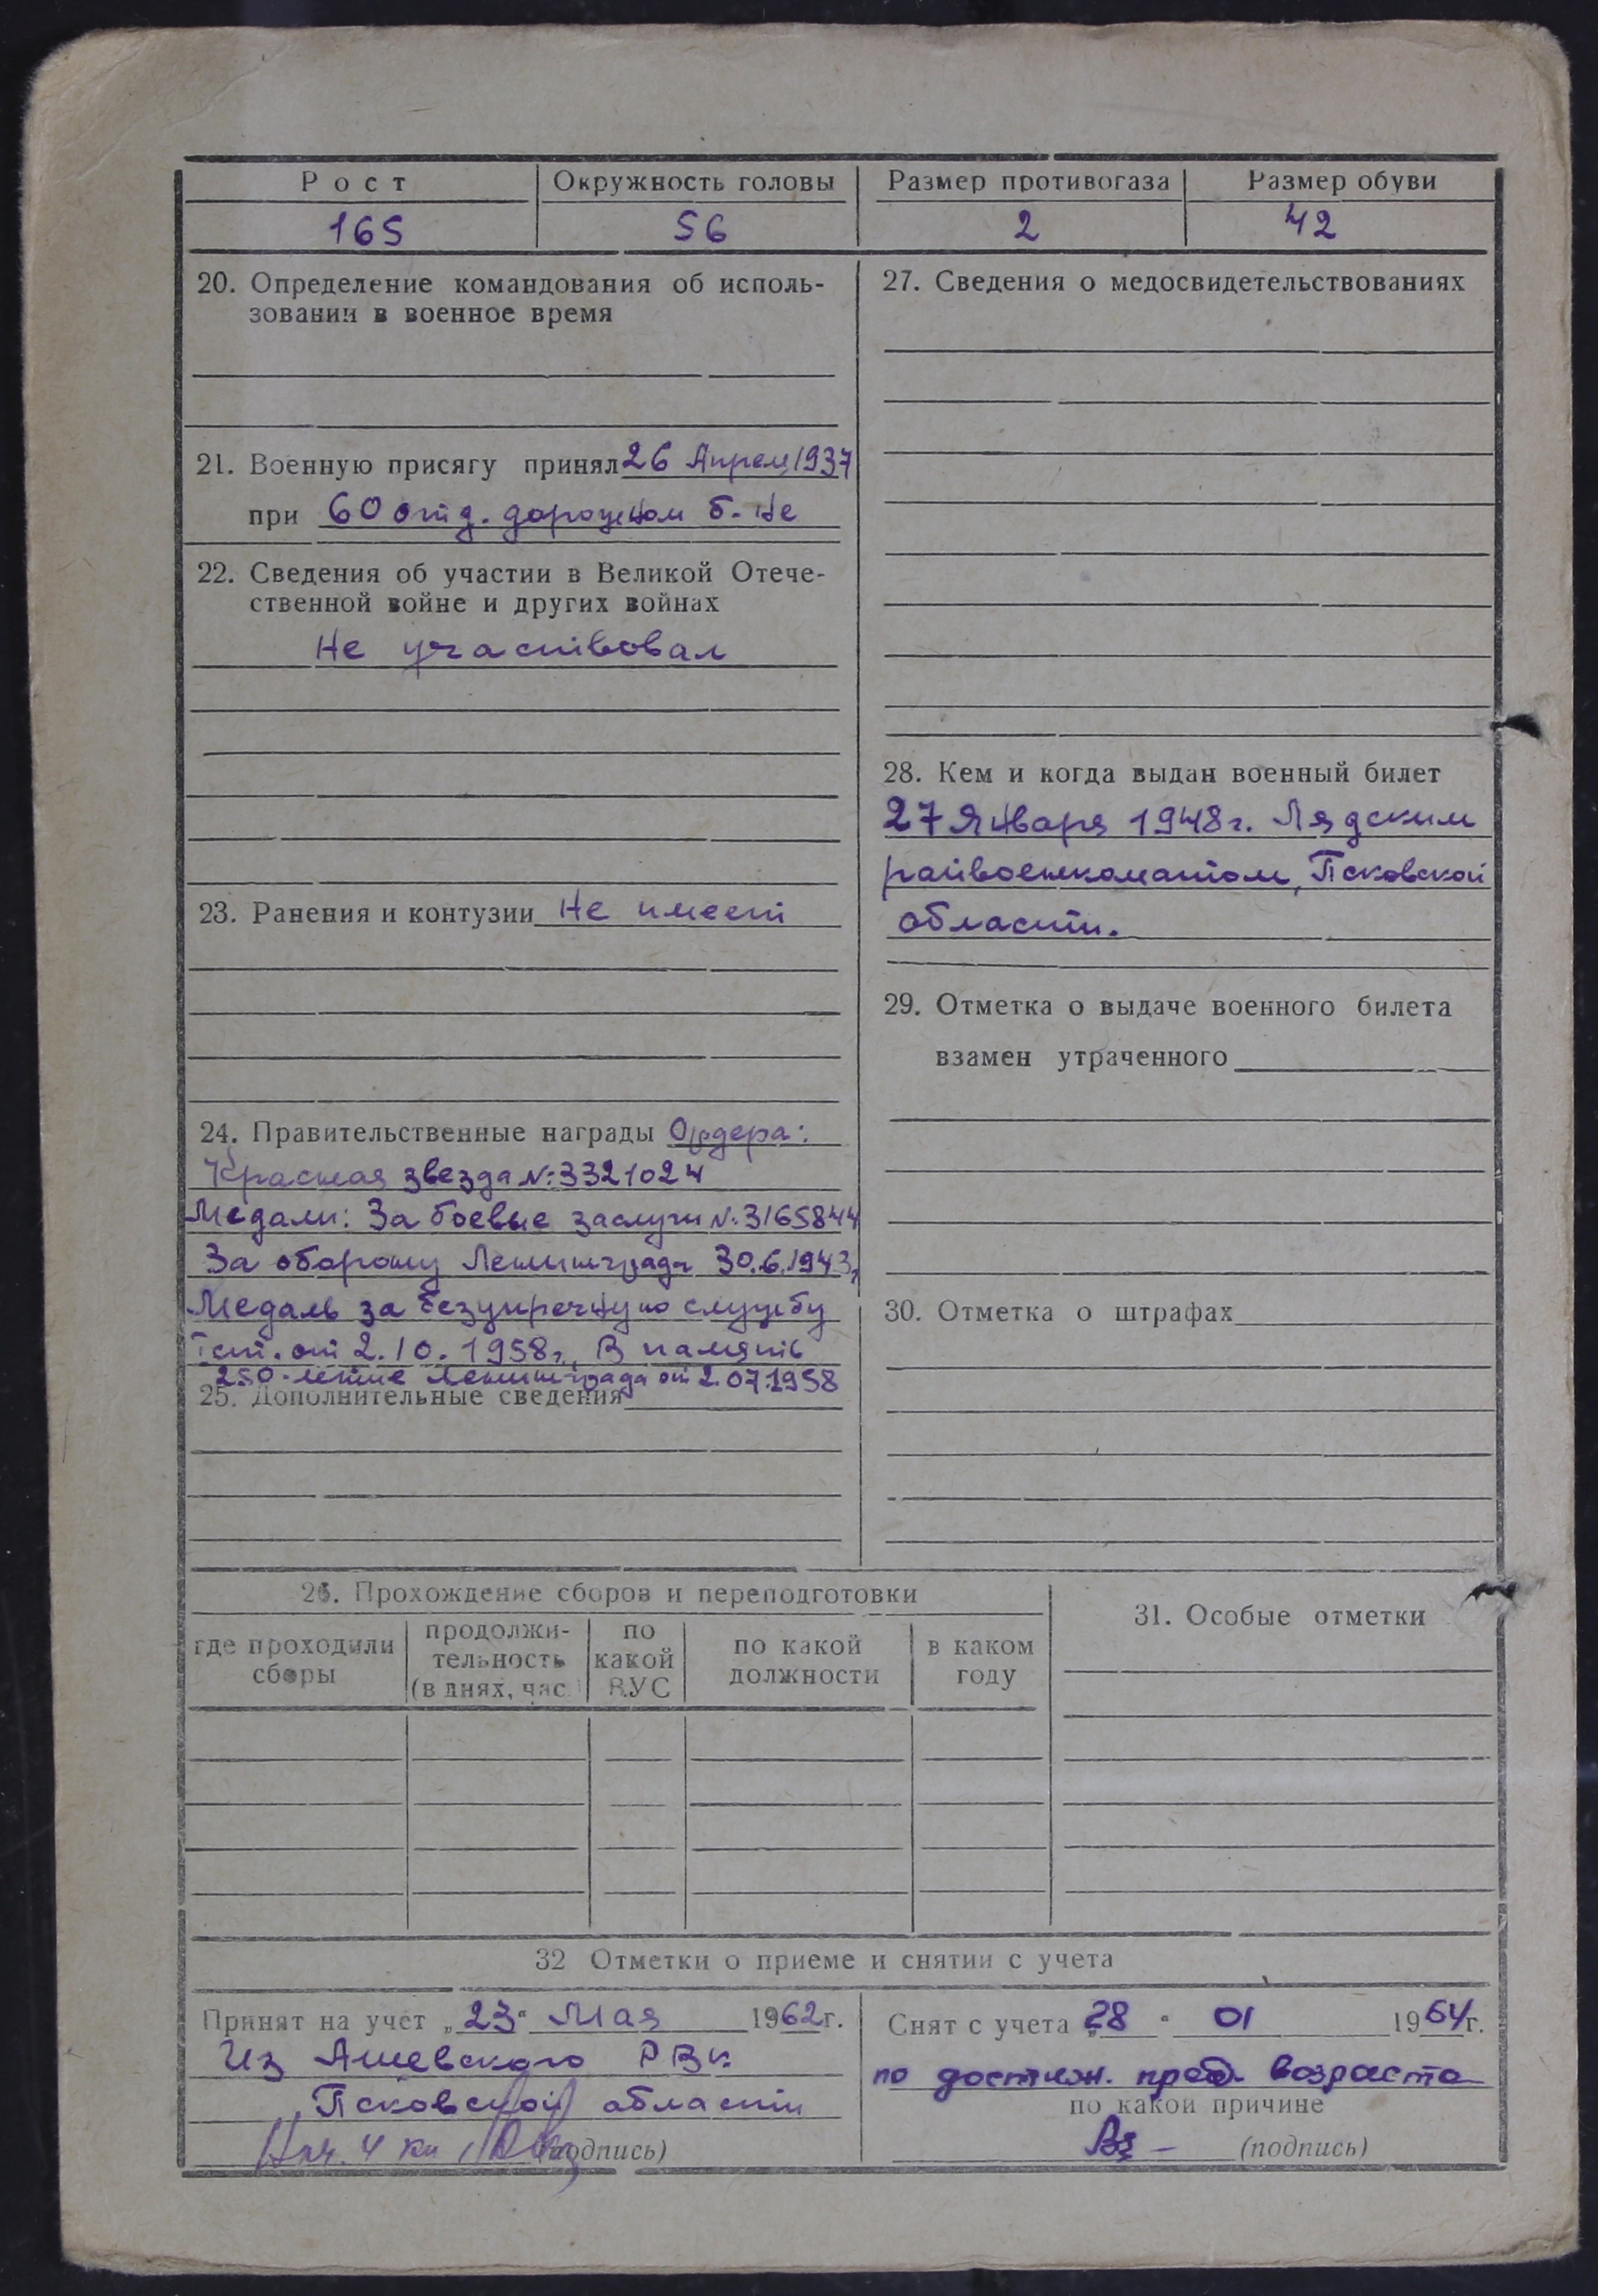 Рост Окружность головы Размер противогаза Размер обуви
165 56 2 42
20. Определение командования об исполь-
зовании в военное время
21. Военную присягу принял 26 Апрел 1937
при 60 отд. дорожном б-не
22. Сведения об участии в Великой Отече-
ственной войне и других войнах
Не участвовал
23. Ранения и контузии Не имеет
24. Правительственные награды Ордера:
Красная звезда №:3321024
Медали: За боевые заслуги №:3165844
За оборону Ленинграда 30.6.1943,
Медаль за безупречную службу
I ст. от 2.10.1958г., В память
250-летие Ленинграда от 2.07.1958
25. Дополнительные сведения
27. Сведения о медосвидетельствованиях
28. Кем и когда выдан военный билет
27 Января 1948г. Лядским
райвоенкоматом, Псковской
области.
29. Отметка о выдаче военного билета
взамен утраченного
30. Отметка о штрафах
26. Прохождение сборов и переподготовки
где проходили
сборы
продолжи-
тельность
(в днях, час.)
по
какой
ВУС
по какой
должности
в каком
году
31. Особые отметки
32 Отметки о приеме и снятии с учета
Принят на учет „23" Мая 1962г.
Из Ашевского РВк
Псковской области
Нач. 4 (подпись)
Снят с учета „28" 01 1964г.
по достиж. пред. возраста
по какой причине
(подпись)